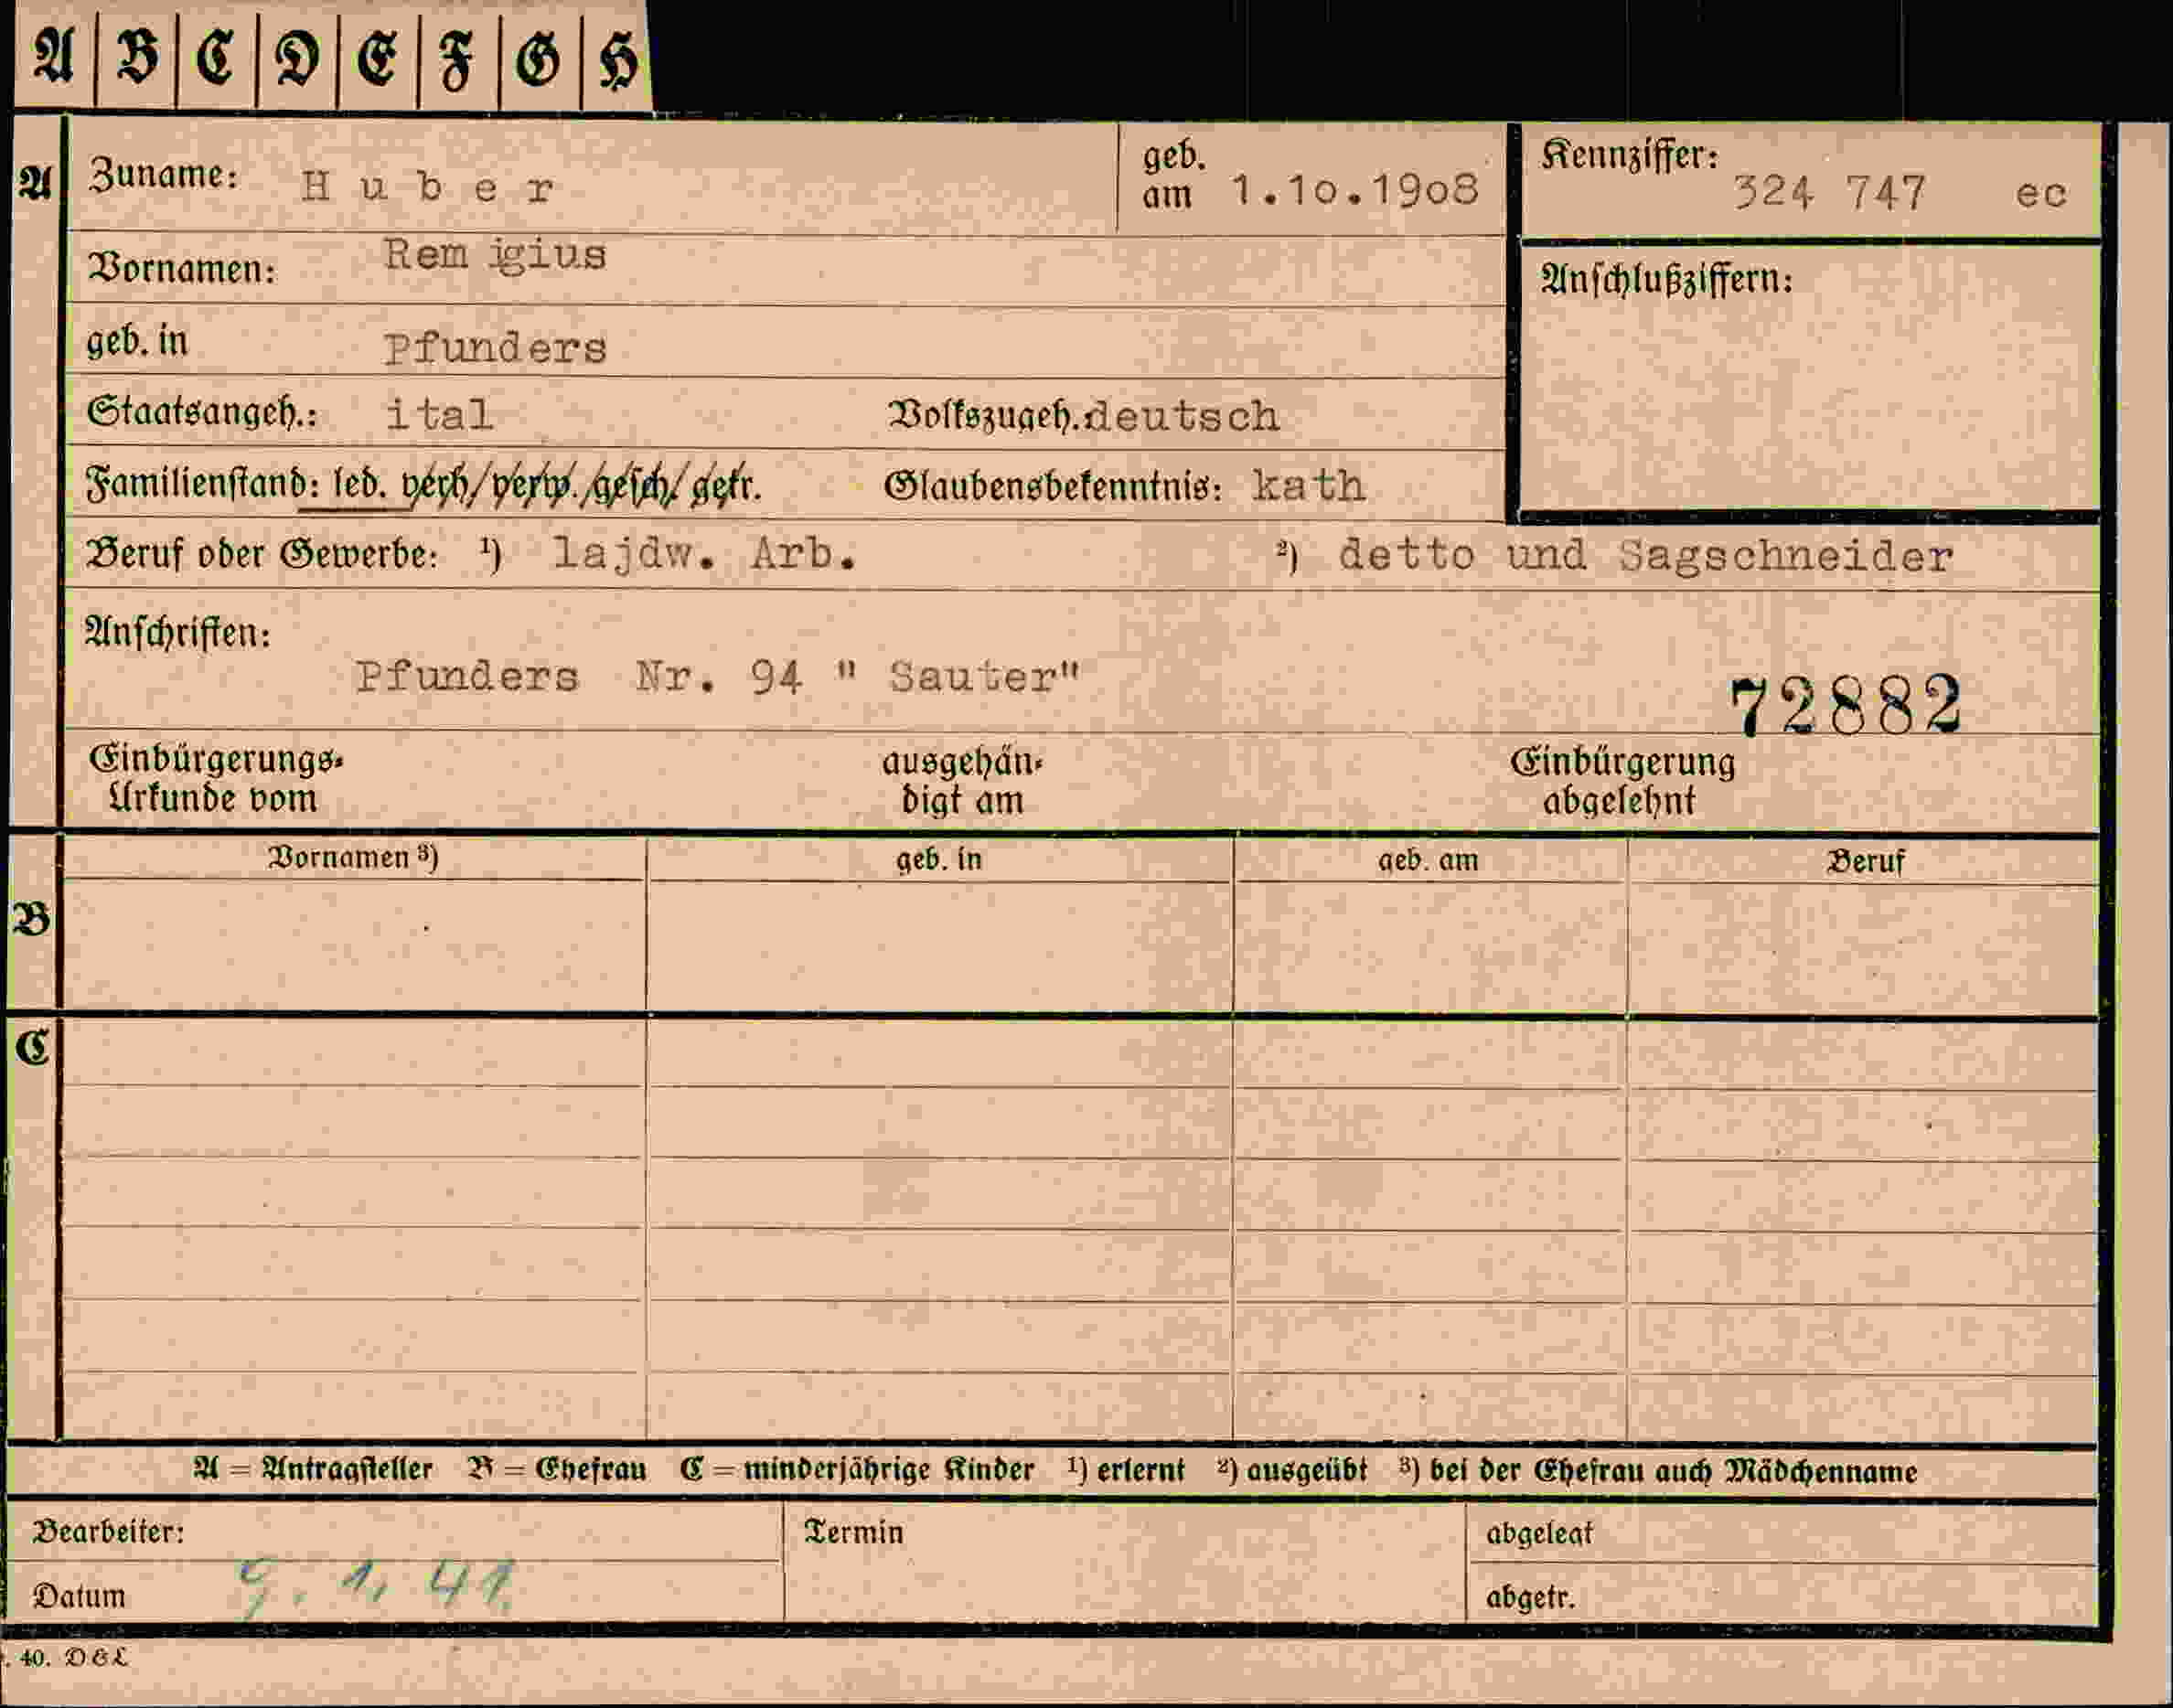 A B C D E F G H
A Zuname: Huber geb. am 1.10.1908 Kennziffer: 324 747 ec
Vornamen: Rem igius Anschlußziffern:
geb. in Pfunders
Staatsangeh.: ital Volkszugeh. deutsch
Familienstand: led. verh/verw./gesch/getr. Glaubensbekenntnis: kath
Beruf oder Gewerbe: ¹) lajdw. Arb. ²) detto und Sagschneider
Anschriften:
Pfunders Nr. 94 " Sauter"
72882
Einbürgerungs- ausgehän- Einbürgerung
Urkunde vom digt am abgelehnt
Vornamen ³) geb. in geb. am Beruf
B
C
A = Antragsteller B = Ehefrau C = minderjährige Kinder ¹) erlernt ²) ausgeübt ³) bei der Ehefrau auch Mädchenname
Bearbeiter: Termin abgelegt
Datum 9. 1. 41. abgetr.
. 40. D & L